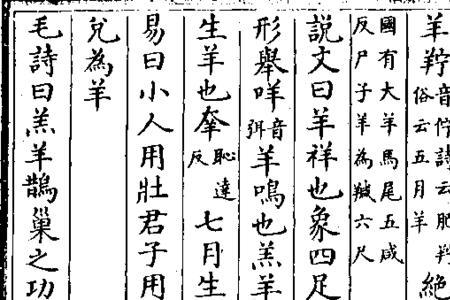 羊羜音佇詩云肥羜俗云五月羊絕
國有大羊馬尾五咸
反尸子羊為羬六尺
說文曰羊祥也象四足
形舉咩音弭羊鳴也羔羊
生羊也羍恥達反七月生
易曰小人用壯君子用
兌為羊
毛詩曰羔羊鵲巢之功